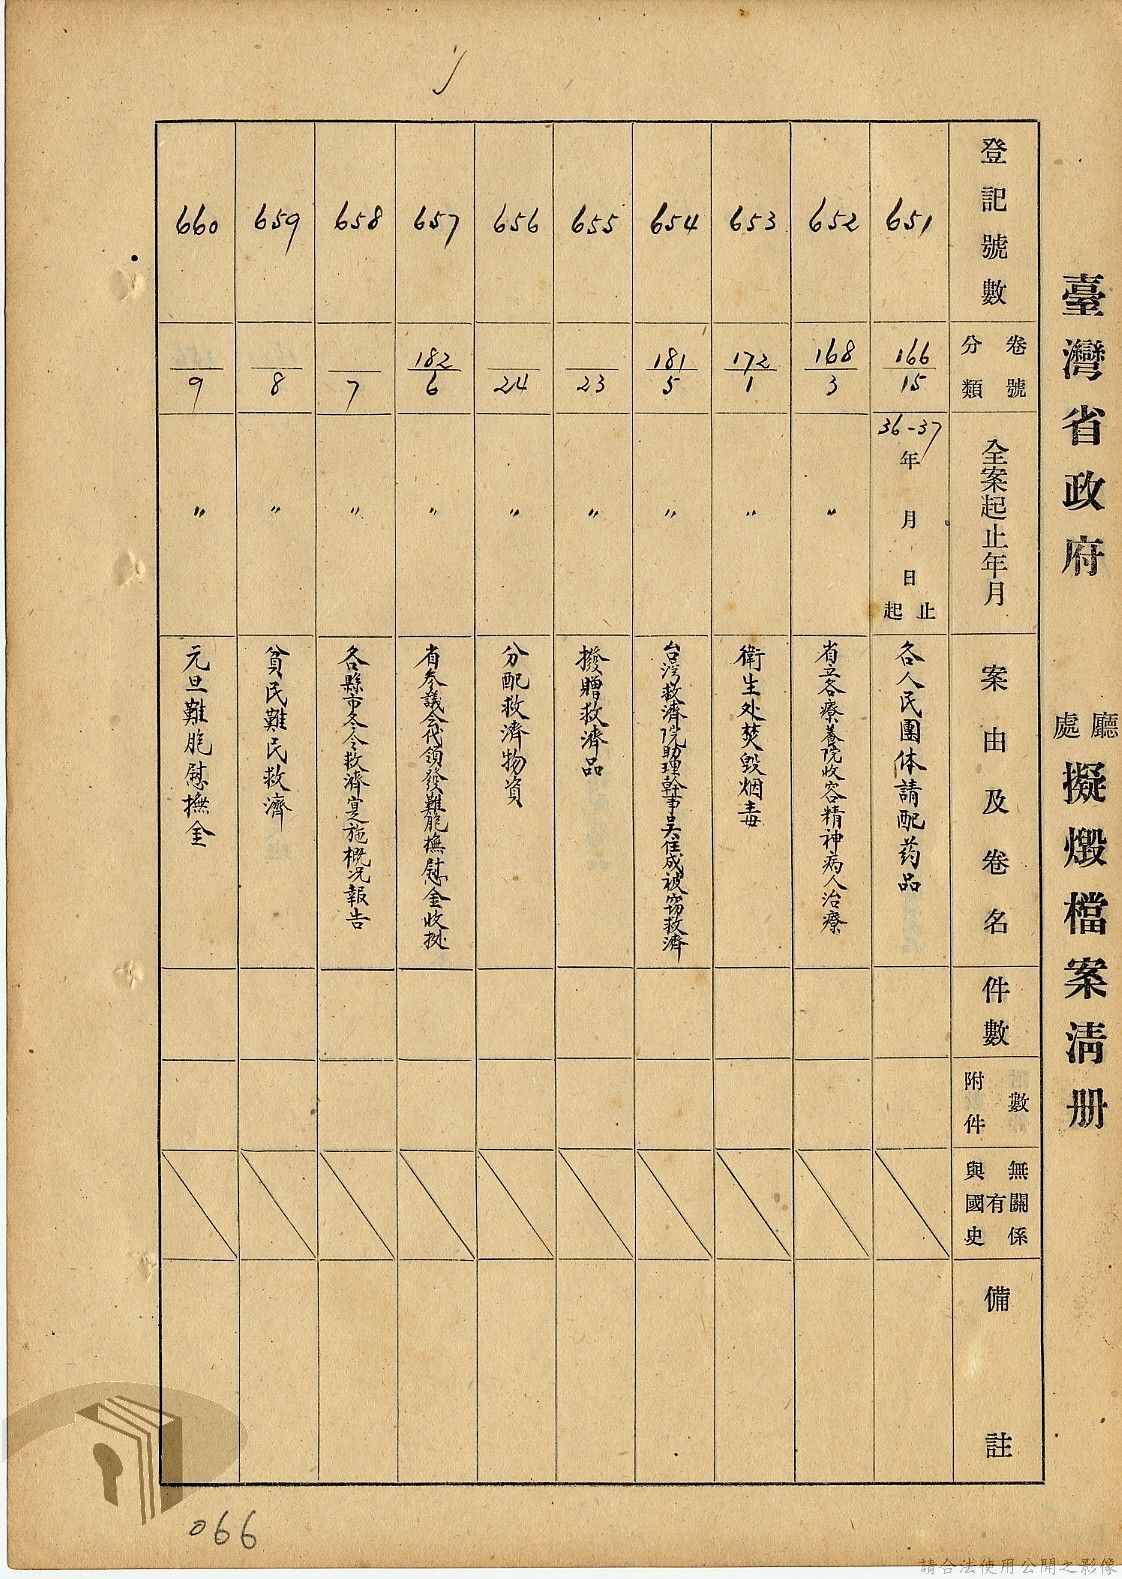 臺灣省政府 廳處 擬燬檔案清册
登記號數
卷號分類
全案起止年月
案由及卷名
件數
附件數
與國史有無關係
備註
651
166/15
36-37年 月 日 起止
各人民團体請配药品
652
168/3
〃
省立各療養院收容精神病人治療
653
172/1
〃
衛生处焚毀烟毒
654
181/5
〃
台湾救濟院助理幹事吳住成被窃救濟
655
23
〃
撥贈救濟品
656
24
〃
分配救濟物資
657
182/6
〃
省参議会代領發難胞撫慰金收据
658
7
〃
各縣市冬令救濟实施概况報告
659
8
〃
貧民難民救濟
660
9
〃
元旦難胞慰撫金
066
請合法使用公開之影像